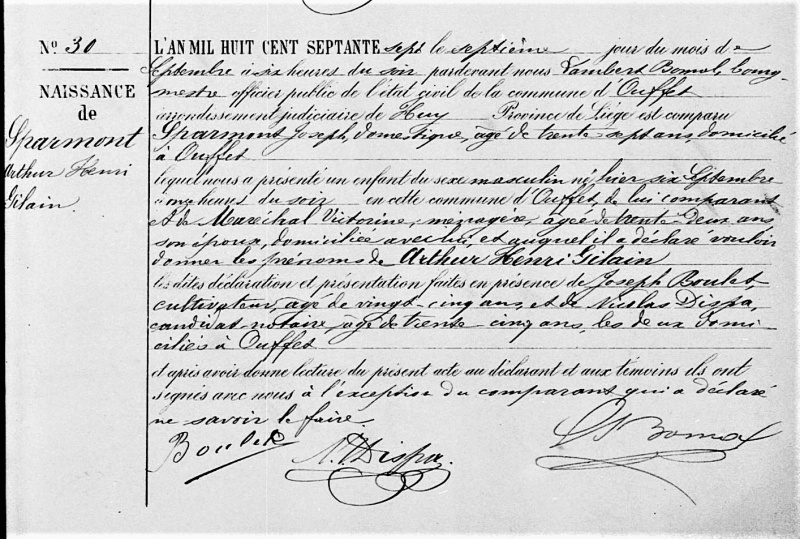 Nº 30
NAISSANCE
de
Sparmont
Arthur Henri
Gilain
L'AN MIL HUIT CENT SEPTANTE sept le septième jour du mois de
Septembre à six heures du soir pardevant nous Lambert Bomal, bourg-
mestre officier public de l'état civil de la commune d'Ouffet
arrondissement judiciaire de Huy Province de Liège est comparu
Sparmont Joseph, domestique, agé de trente sept ans, domicilié
à Ouffet
lequel nous a présenté un enfant du sexe masculin né hier six Septembre
à onze heures du soir en cette commune d'Ouffet, de lui comparant
et de Maréchal Victorine, ménagère, agée de trente deux ans
son époux, domiciliée avec lui, et auquel il a déclaré vouloir
donner les prénoms de Arthur Henri Gilain
les dites déclaration et présentation faites en présence de Joseph Boulet,
cultivateur, agé de vingt-cinq ans, et de Nicolas Dispa,
candidat-notaire, agé de trente cinq ans, les deux domi-
ciliés à Ouffet
et après avoir donné lecture du présent acte au déclarant et aux témoins ils ont
signés avec nous à l'exception du comparant qui a déclaré
ne savoir le faire.
Boulet
N. Dispa.
L Bomal